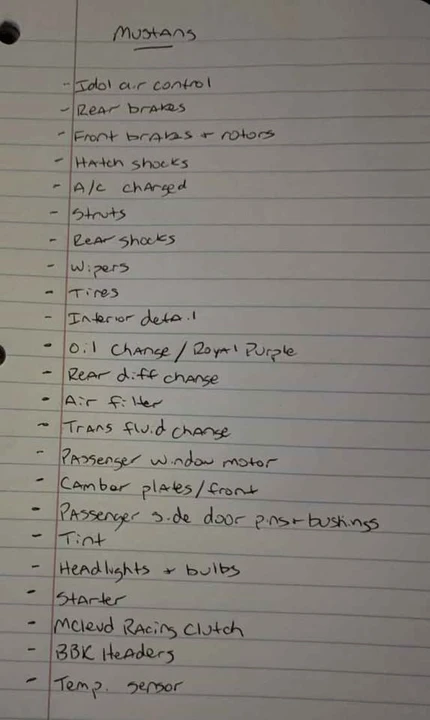 Mustang
- Idol air control
- Rear brakes
- Front brakes + rotors
- Hatch shocks
- A/c charged
- Struts
- Rear shocks
- Wipers
- Tires
- Interior detail
- Oil change / Royal Purple
- Rear diff change
- Air filter
- Trans fluid change
- Passenger window motor
- Camber plates/front
- Passenger side door pins + bushings
- Tint
- Headlights + bulbs
- Starter
- Mcleud Racing Clutch
- BBK Headers
- Temp. sensor